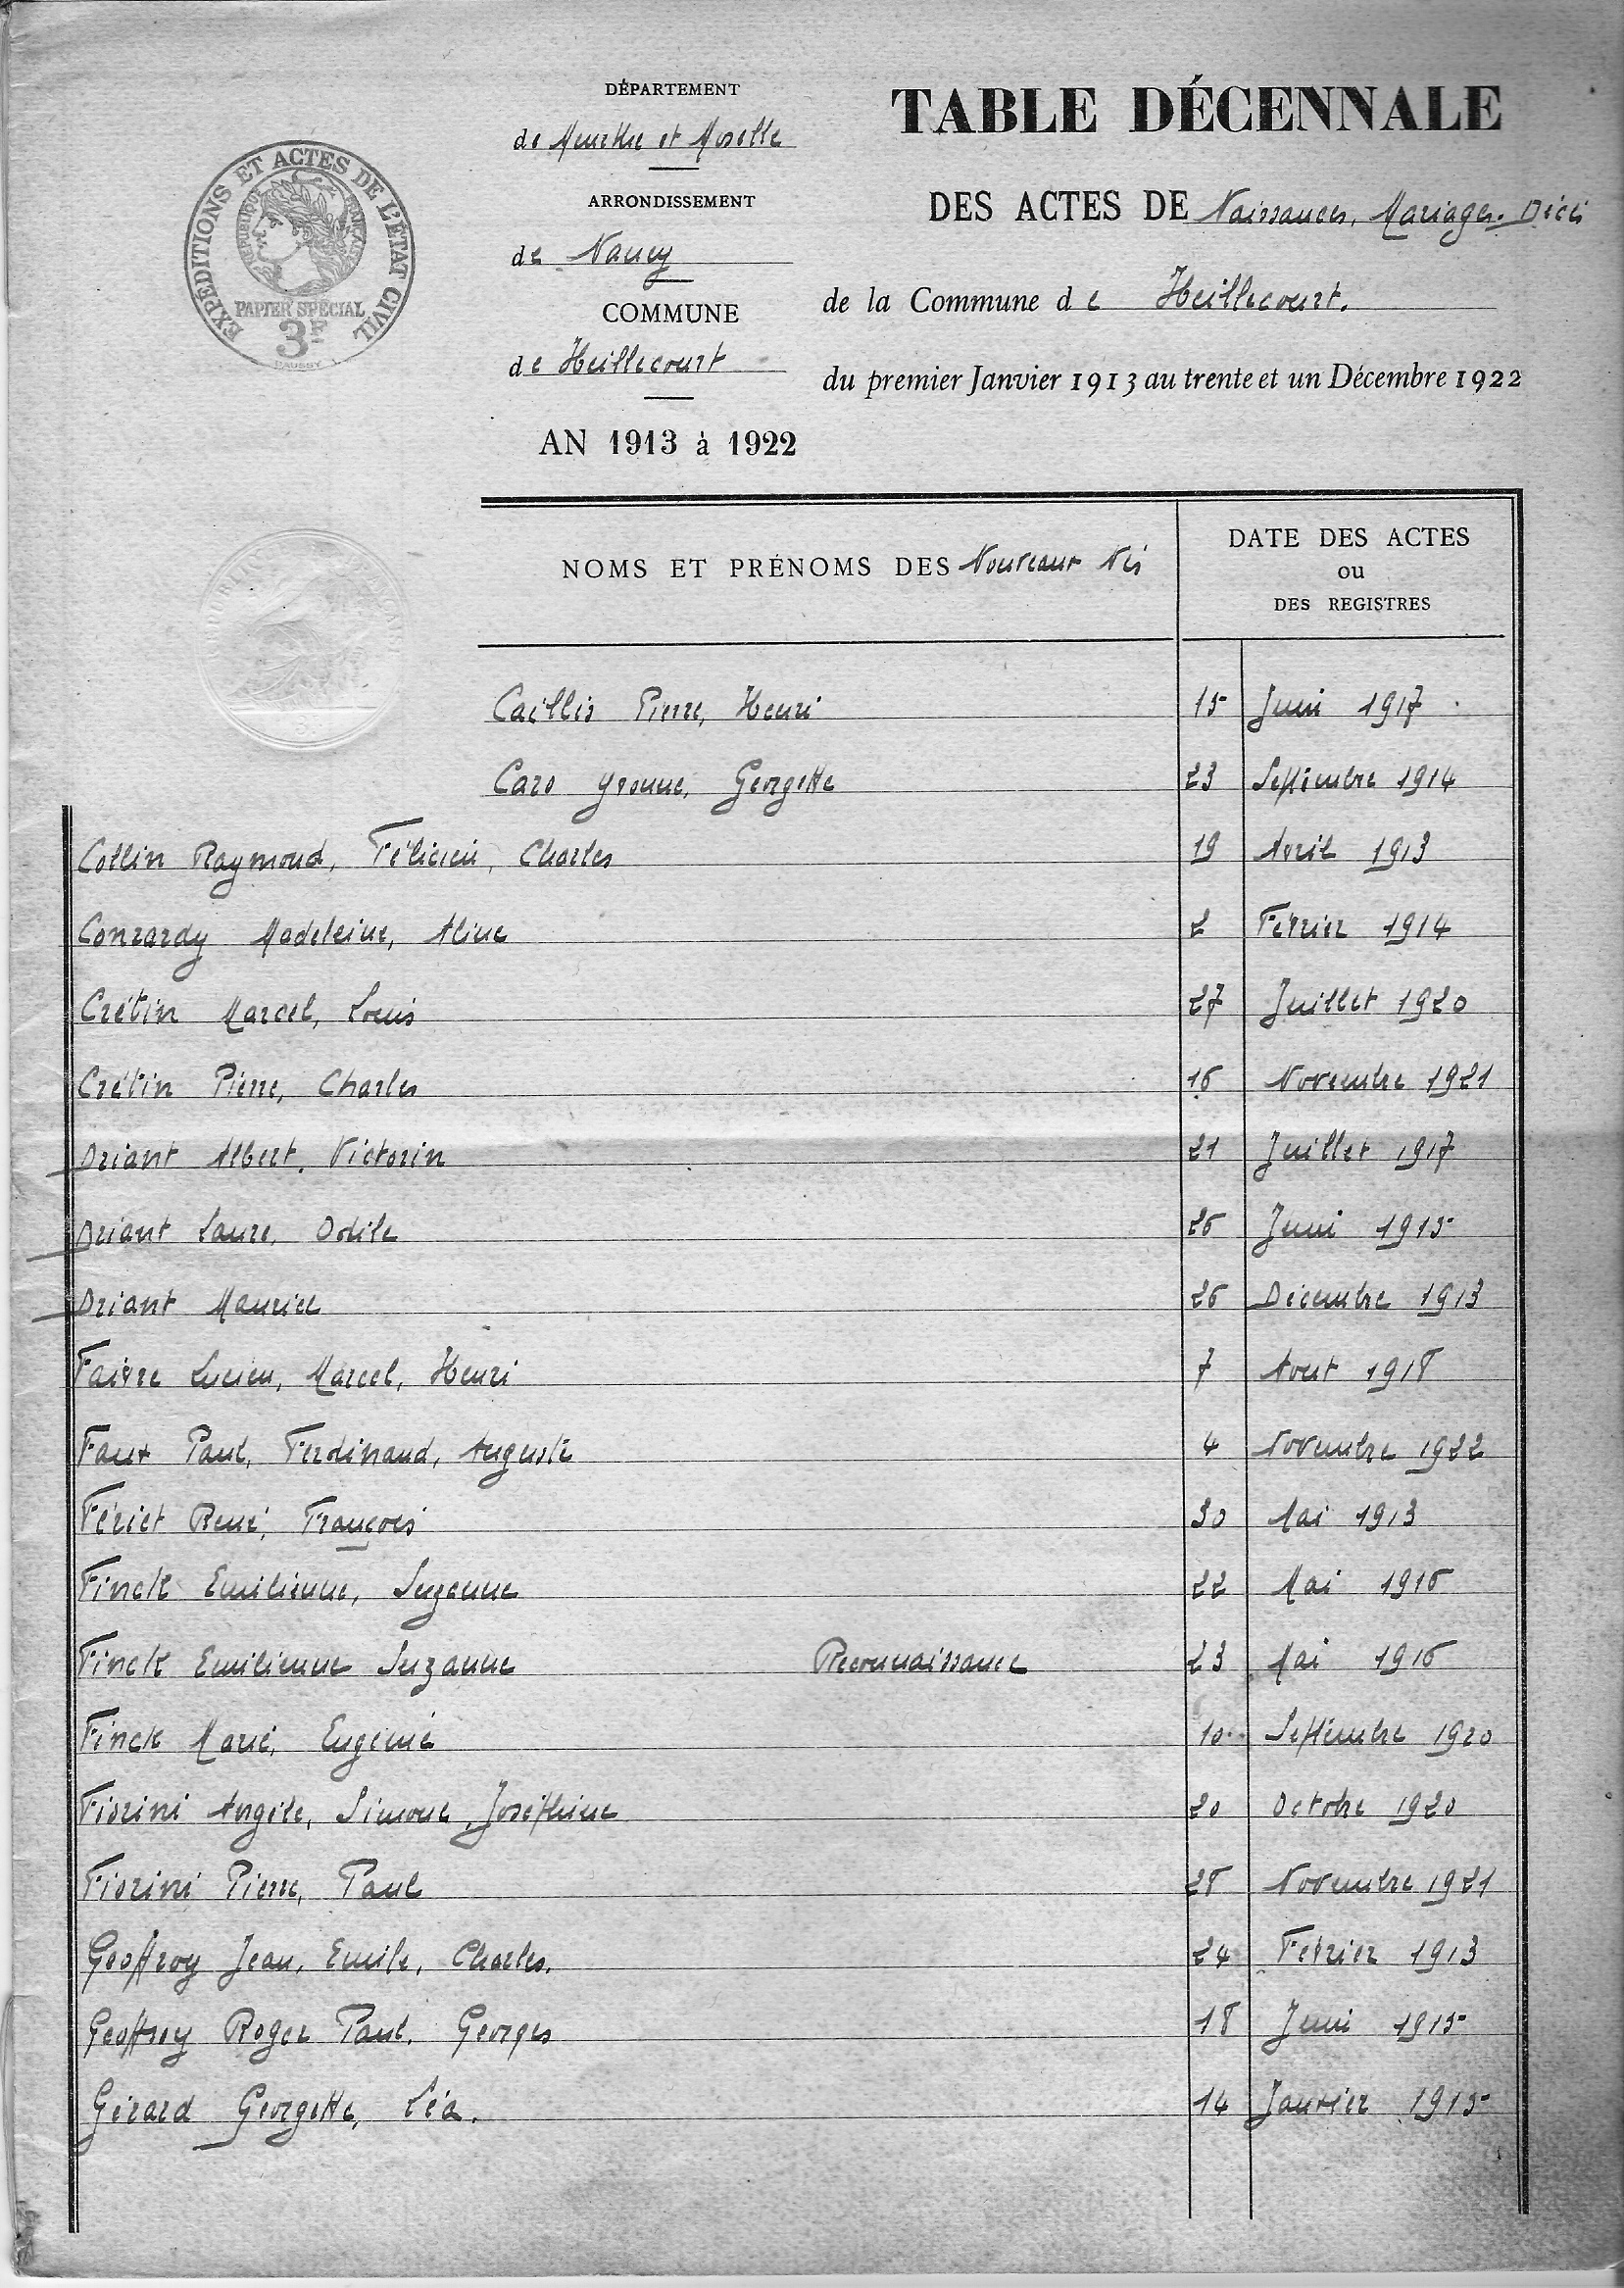 DÉPARTEMENT
de Meurthe et Moselle
ARRONDISSEMENT
de Nancy
COMMUNE
de Heillecourt
AN 1913 à 1922
EXPÉDITIONS ET ACTES DE L'ÉTAT CIVIL
PAPIER SPÉCIAL
3F
TABLE DÉCENNALE
DES ACTES DE Naissances, Mariages. Décès
de la Commune de Heillecourt.
du premier Janvier 1913 au trente et un Décembre 1922
NOMS ET PRÉNOMS DES Nouveaux Nés
DATE DES ACTES
ou
DES REGISTRES
Caillis Pierre, Henri 15 Juin 1917
Caro Yvonne, Georgette 23 Septembre 1914
Collin Raymond, Félicien, Charles 19 Avril 1913
Conrardy Madeleine, Aline 2 Février 1914
Crétin Marcel, Louis 27 Juillet 1920
Crétin Pierre, Charles 16 Novembre 1921
Driant Albert, Victorin 21 Juillet 1917
Driant Laure, Odile 26 Juin 1915
Driant Maurice 26 Décembre 1913
Faivre Lucien, Marcel, Henri 7 Aout 1918
Faux Paul, Ferdinand, Auguste 4 Novembre 1922
Fériet René, François 30 Mai 1913
Finck Emilienne, Suzanne 22 Mai 1916
Finck Emilienne Suzanne Reconnaissance 23 Mai 1916
Finck Marie, Eugénie 10 Septembre 1920
Fiorini Angèle, Simone, Joséphine 20 Octobre 1920
Fiorini Pierre, Paul 28 Novembre 1921
Geoffroy Jean, Emile, Charles. 24 Février 1913
Geoffroy Roger Paul, Georges 18 Juin 1915
Gérard Georgette, Léa. 14 Janvier 1915